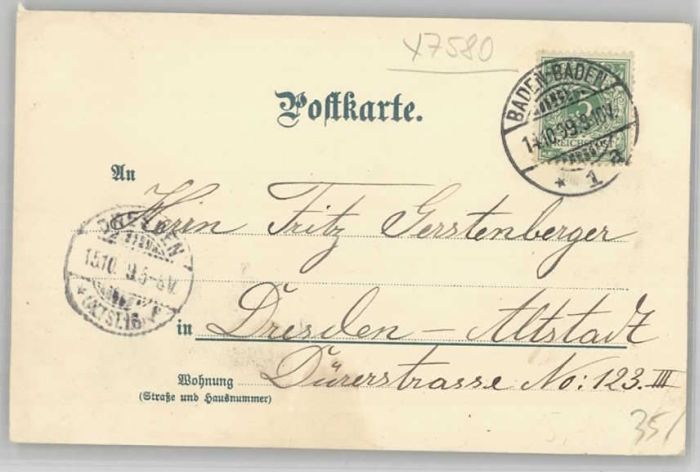 X7580
BADEN-BADEN
14.10.99.9-10V.
* 1 a
REICHSPOST
Postkarte.
An
Herrn Fritz Gerstenberger
DRESDEN
15.10. 99.5-6V.
in Dresden – Altstadt
Wohnung Dürerstrasse No: 123. III
(Straße und Hausnummer)
35/